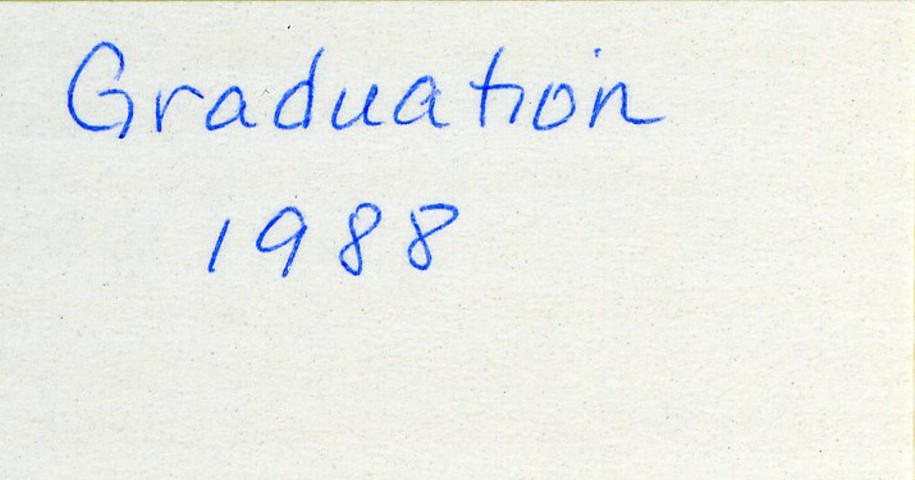 Graduation
1988